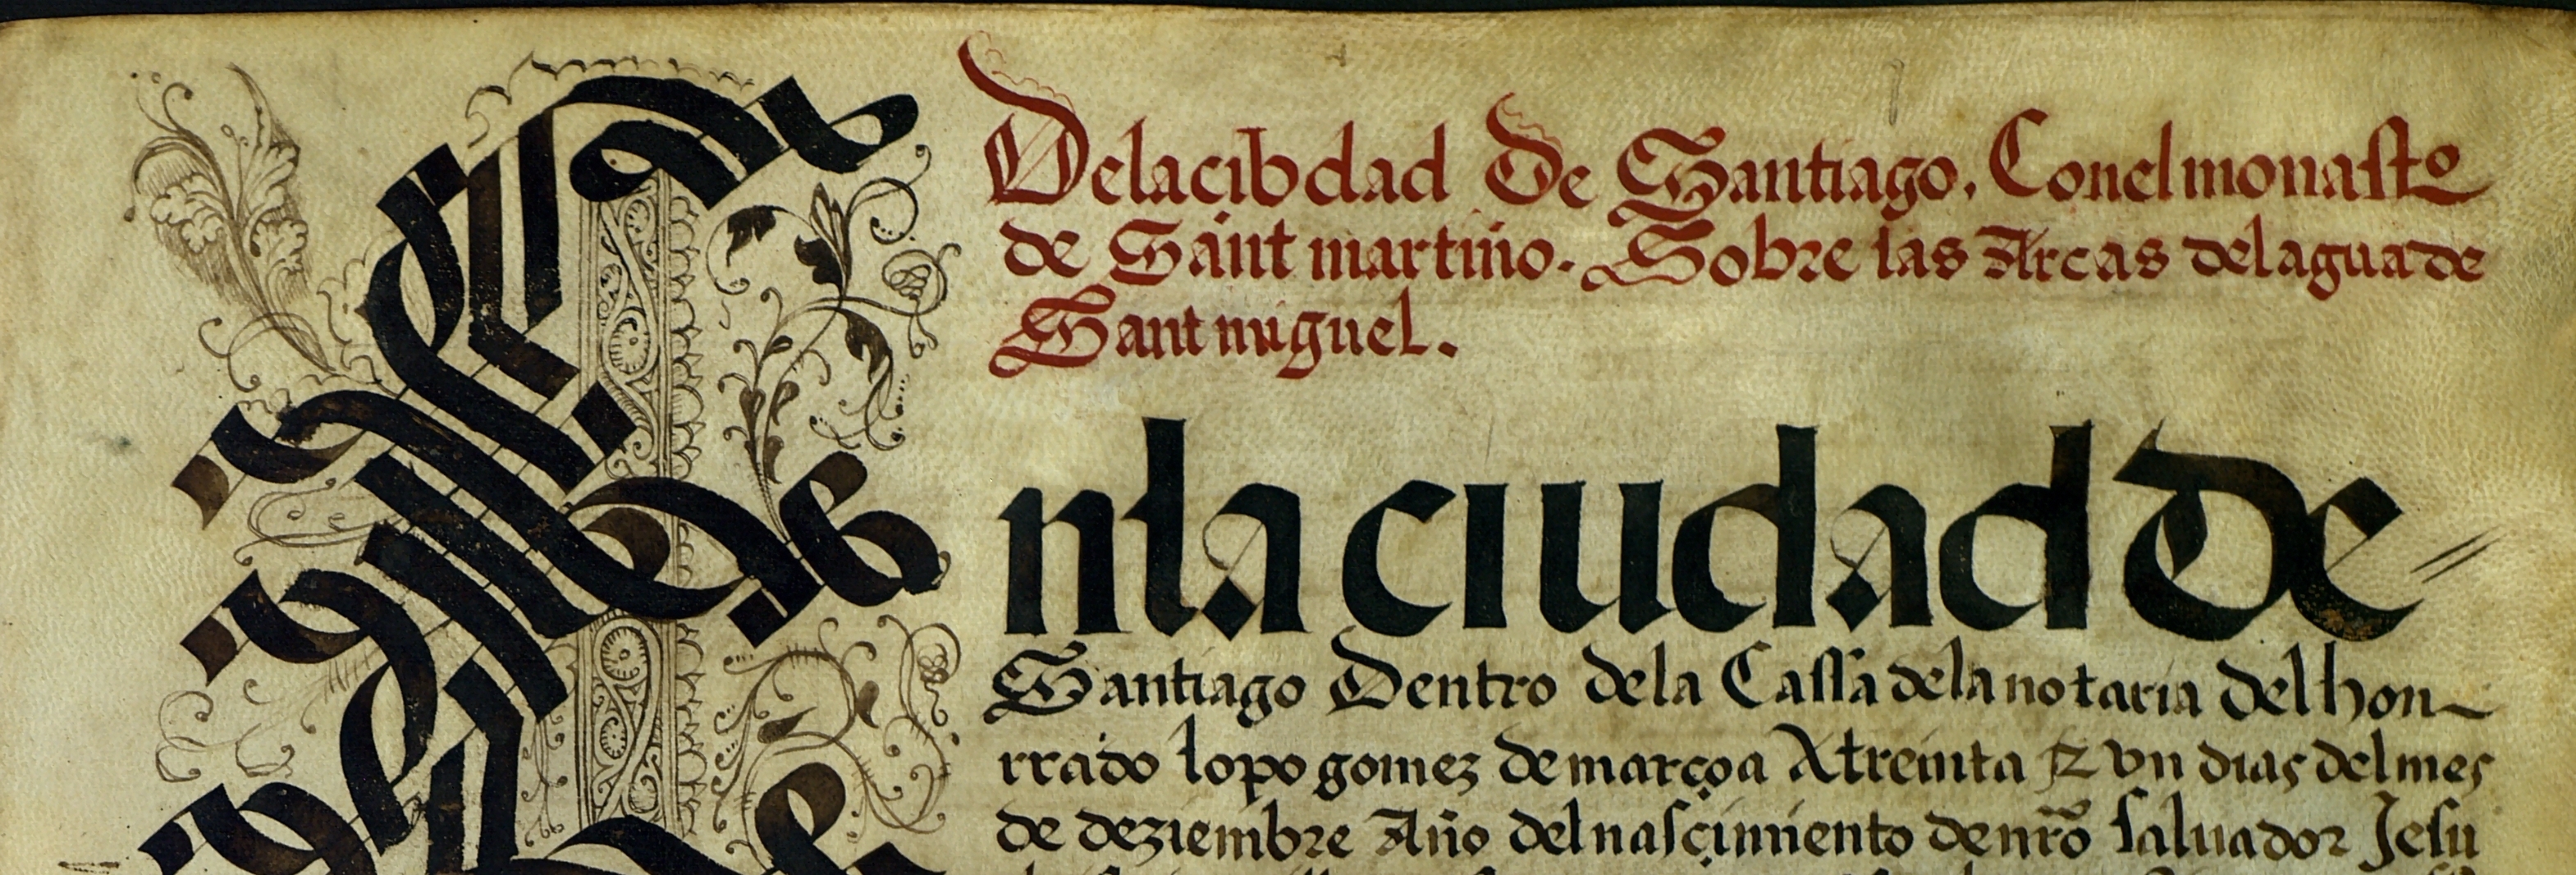 Delacibdad De Santiago. Conel monasto
de Sant martino. Sobre las Arcas delagua de
Sant miguel.
Enla ciudad de
Santiago Dentro dela Cassa dela notaria Del hon-
rrado lopo gomez de marçoa A treinta & vn dias del mes
de deziembre Año del nasçimiento de nro saluador Jesu